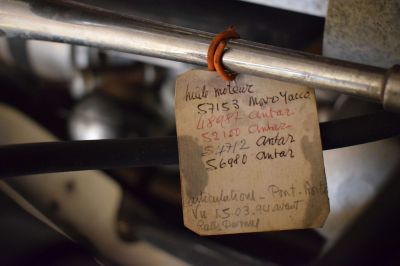 huile moteur
57153 Moto Yacco
48987 antar
52160 Antar
54712 Antar
56980 antar
articulations - Pont - Boite
Vu 15-03-94 avant